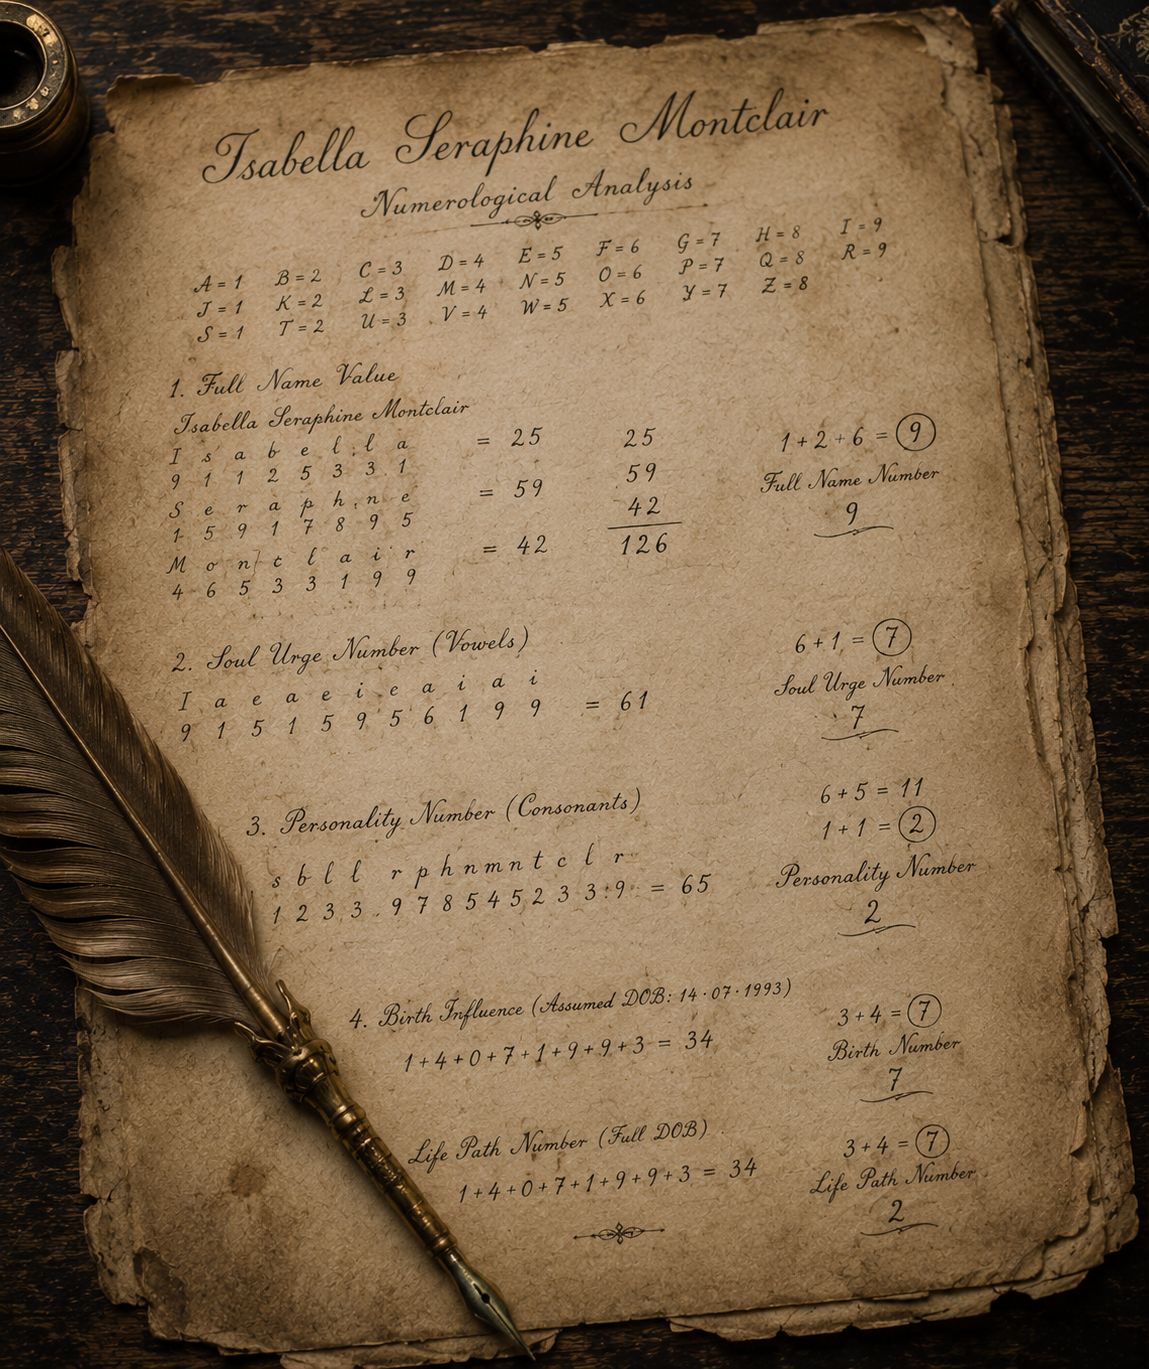 Isabella Seraphine Montclair
Numerological Analysis
A = 1 B = 2 C = 3 D = 4 E = 5 F = 6 G = 7 H = 8 I = 9
J = 1 K = 2 L = 3 M = 4 N = 5 O = 6 P = 7 Q = 8 R = 9
S = 1 T = 2 U = 3 V = 4 W = 5 X = 6 Y = 7 Z = 8
1. Full Name Value
Isabella Seraphine Montclair
I s a b e l l a = 25
9 1 1 2 5 3 3 1
S e r a p h i n e = 59
1 5 9 1 7 8 9 5
M o n t c l a i r = 42
4 6 5 3 3 1 9 9
25
59
42
126
1 + 2 + 6 = 9
Full Name Number
9
2. Soul Urge Number (Vowels)
I a e a e i e a i a i
9 1 5 1 5 9 5 6 1 9 9 = 61
6 + 1 = 7
Soul Urge Number
7
3. Personality Number (Consonants)
s b l l r p h n m n t c l r
1 2 3 3 9 7 8 5 4 5 2 3 3 9 = 65
6 + 5 = 11
1 + 1 = 2
Personality Number
2
4. Birth Influence (Assumed DOB: 14·07·1993)
1 + 4 + 0 + 7 + 1 + 9 + 9 + 3 = 34
3 + 4 = 7
Birth Number
7
Life Path Number (Full DOB)
1 + 4 + 0 + 7 + 1 + 9 + 9 + 3 = 34
3 + 4 = 7
Life Path Number
2